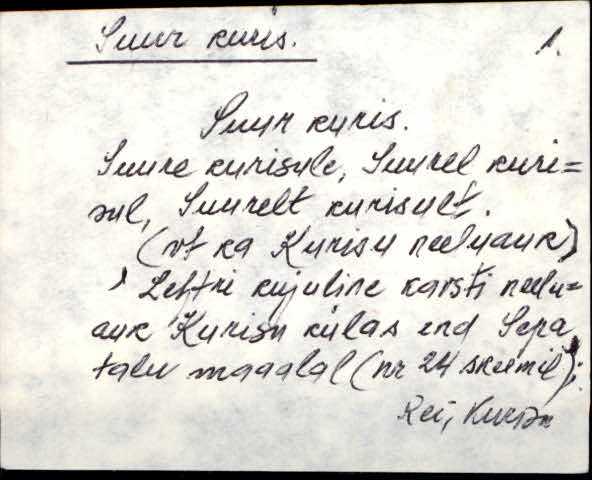 Suur kuris. 1.
Suur kuris.
Suure kurisule, Suurel kuri=
sul, Suurelt kurisult.
(vt ka Kurisu neeluauk)
Lehtri kujuline karsti neelu=
auk Kurisu külas end Sepa
talu maaalal (nr 24 skeemil);
Rei, Kurisu